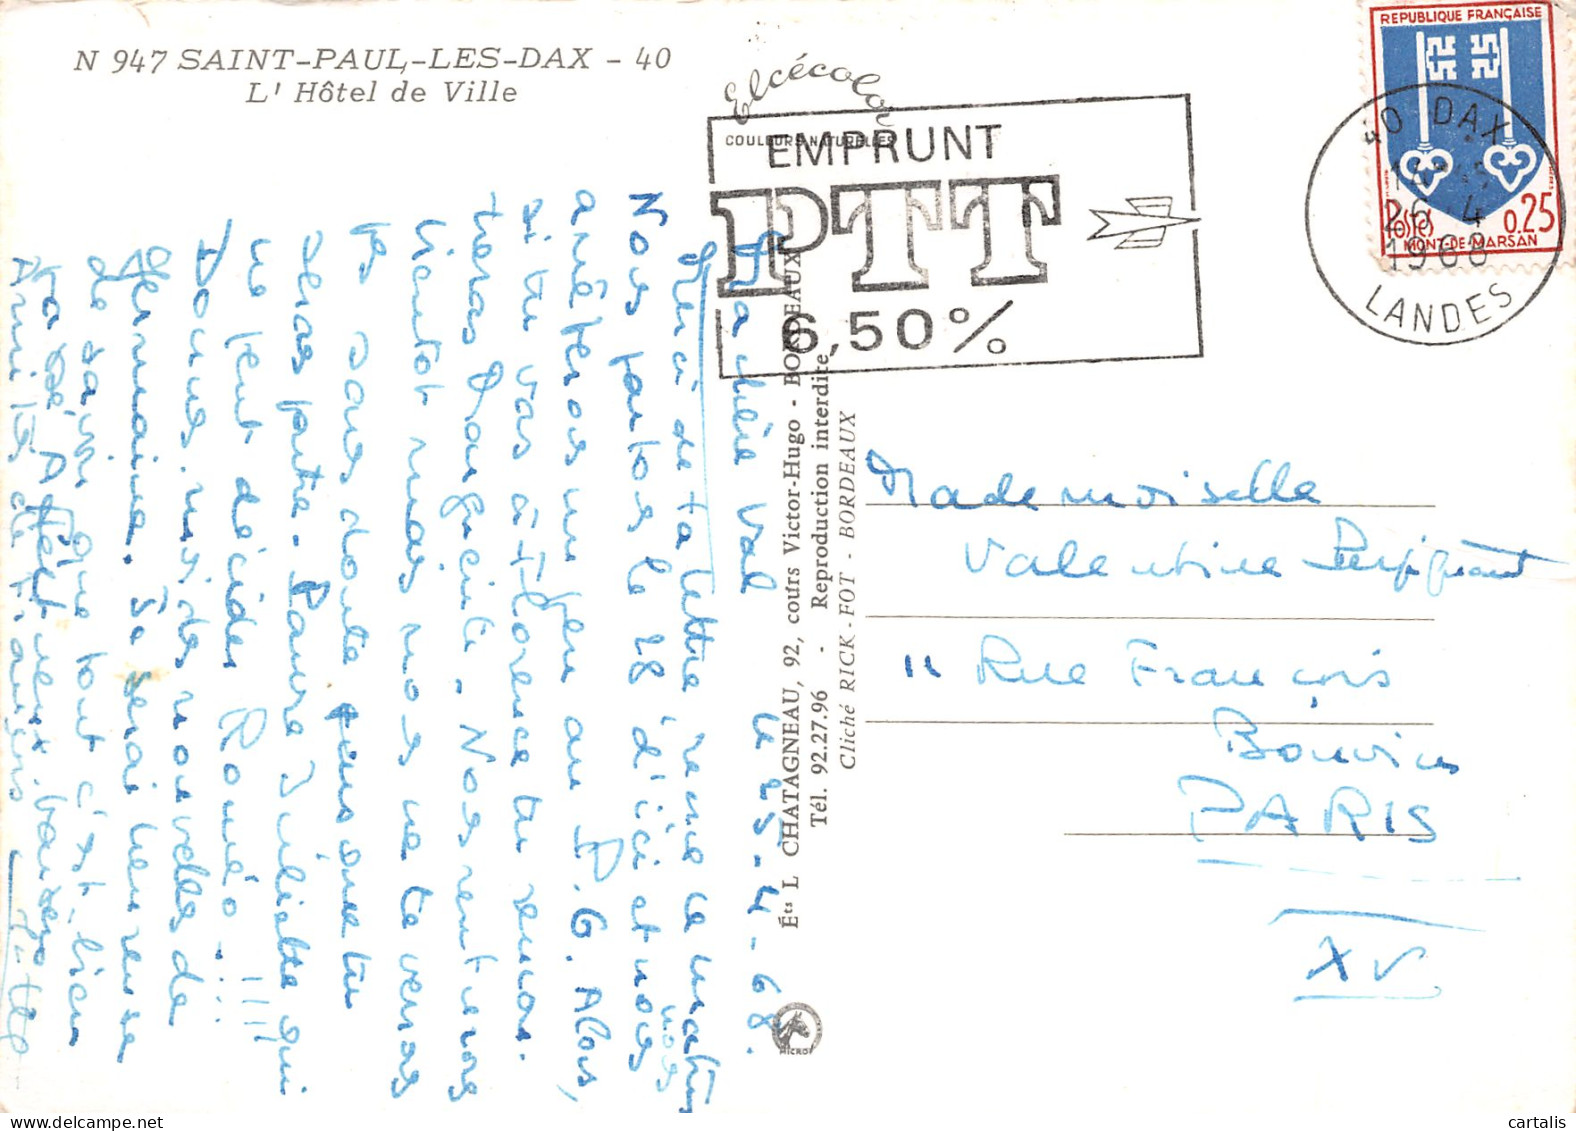 N 947 SAINT-PAUL-LES-DAX - 40
L' Hôtel de Ville
Elcécolor
COULEURS NATURELLES
EMPRUNT
PTT
6,50%
REPUBLIQUE FRANÇAISE
Postes 0.25
MONT-DE-MARSAN
40 DAX
26 - 4
1968
LANDES
Ma chère Val le 25-4-68.
Merci de ta lettre reçue ce matin
Nous partons le 28 d'ici et nous nous
arrêterons un peu au P. G. Alors,
si tu vas à Florence tu
verras Marguerite. Nous rentrerons
bientôt mais nous ne te verrons
pas sans doute puisque tu
seras partie. Pauvre Juliette qui
ne peut décider Roméo....!!!!
Donne-moi des nouvelles de
Germaine. Je serai heureuse
de savoir que tout s'est bien
passé. Affectueux baisers
Amitiés
Éts L CHATAGNEAU, 92, cours Victor-Hugo - BORDEAUX
Tél. 92.27.96 - Reproduction interdite
Cliché RICK-FOT - BORDEAUX
MICRO
Mademoiselle
Valentine
11 Rue François
Bonvin
PARIS
XV
cartalis